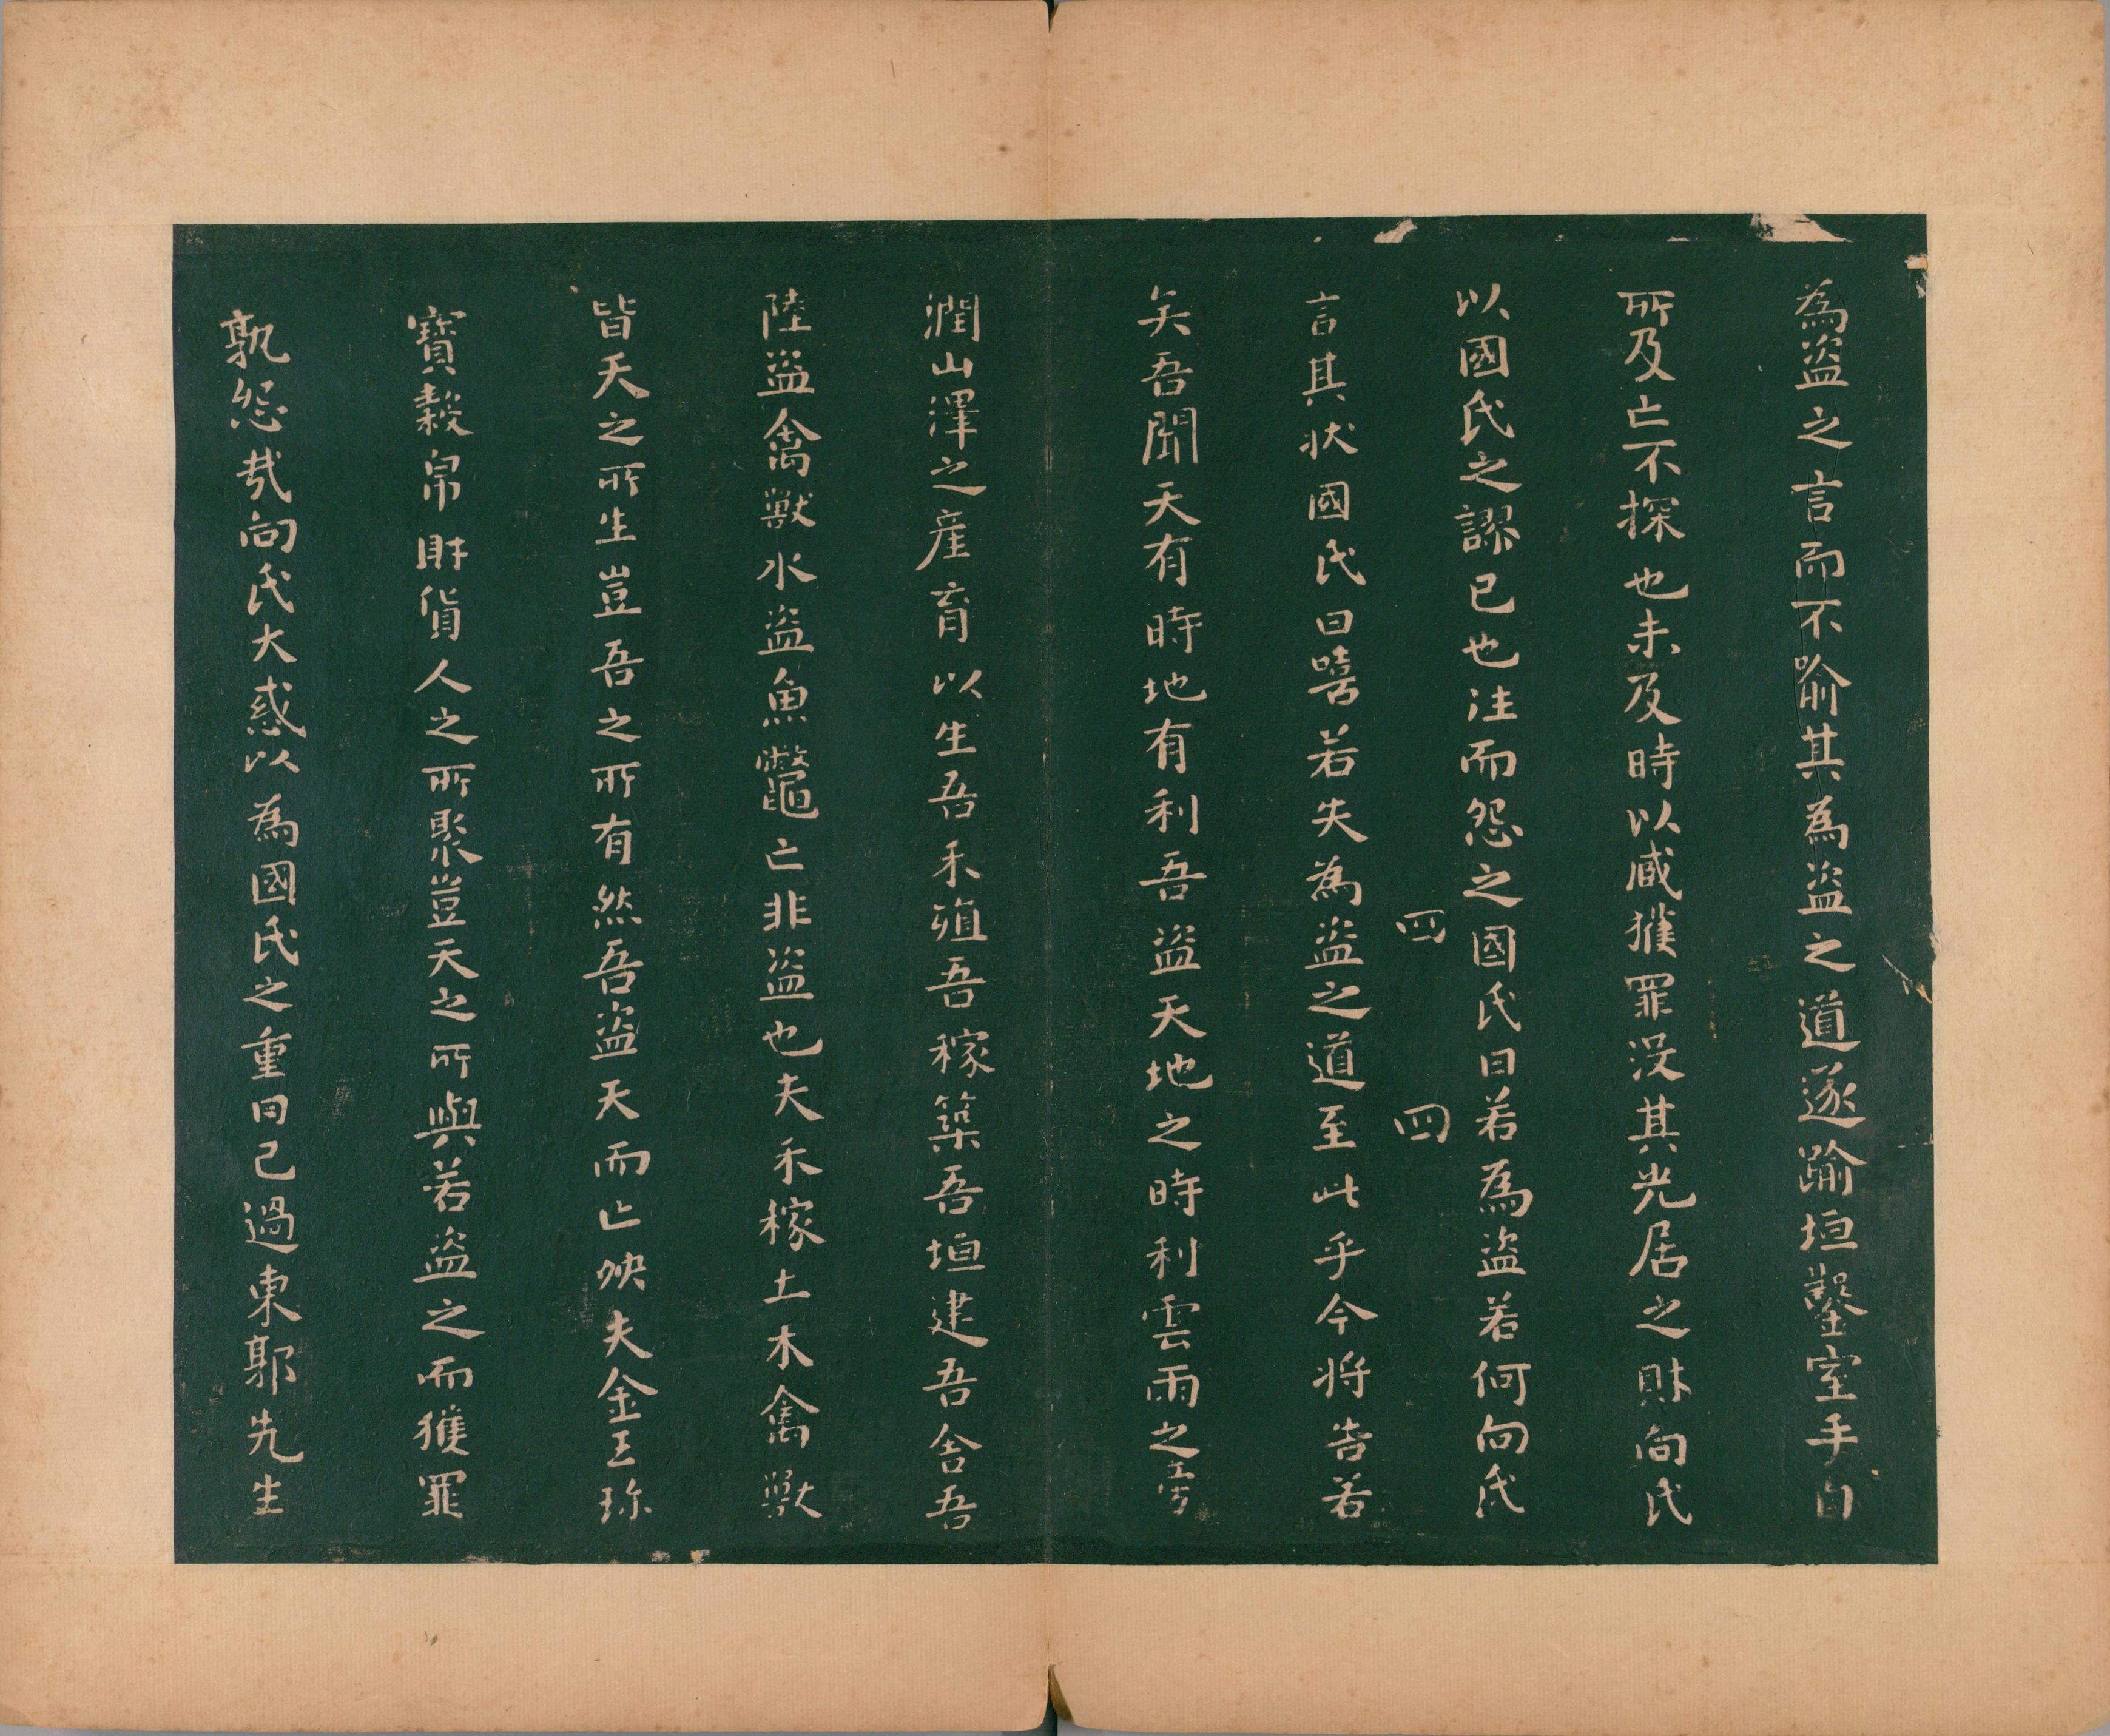 為盜之言而不喻其為盜之道遂踰垣鑿室手目
所及亡不探也未及時以臧獲罪沒其先居之財向氏
以國氏之謬已也注而怨之國氏曰若為盜若何向氏
四
四
言其狀國氏曰嘻若失為盜之道至此乎今將告若
矣吾聞天有時地有利吾盜天地之時利雲雨之雱
潤山澤之產育以生吾禾殖吾稼築吾垣建吾舍吾
陸盜禽獸水盜魚鼈亡非盜也夫禾稼土木禽獸
皆天之所生豈吾之所有然吾盜天而亡殃夫金玉珎
寶穀帛財貨人之所聚豈天之所與若盜之而獲罪
孰怨哉向氏大惑以為國氏之重罔己過東郭先生